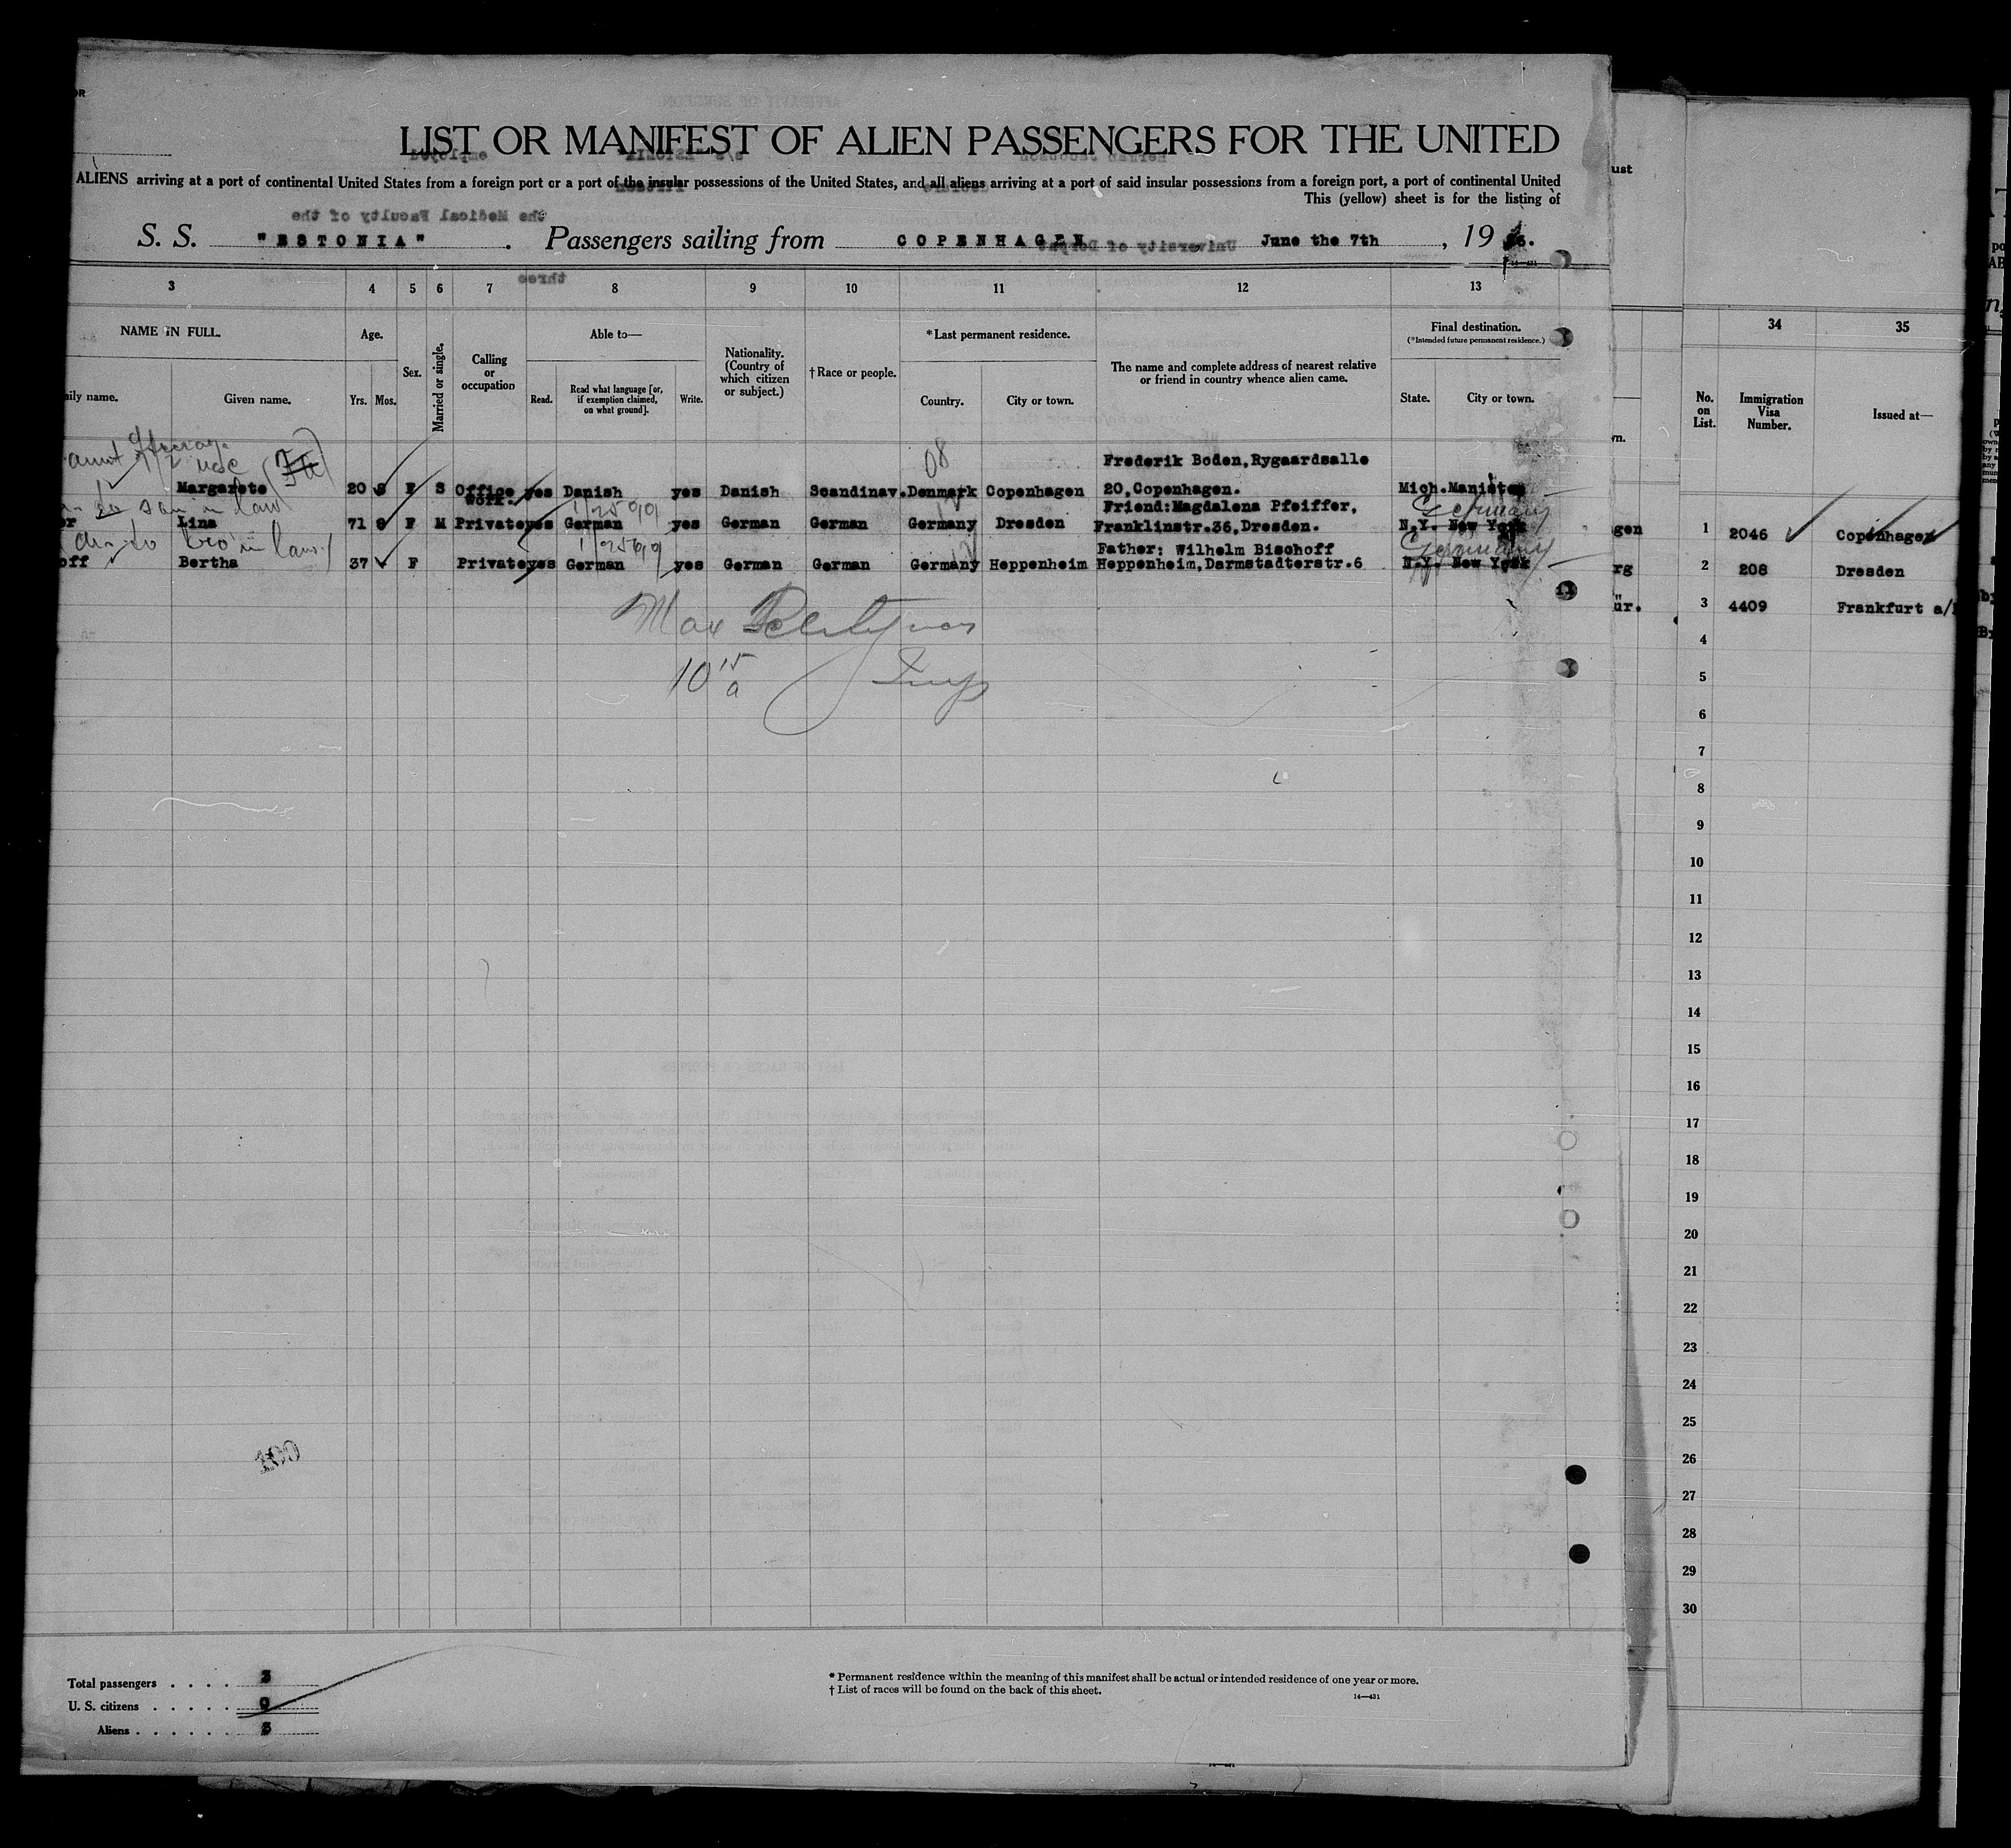 OR
LIST OR MANIFEST OF ALIEN PASSENGERS FOR THE UNITED
ALIENS arriving at a port of continental United States from a foreign port or a port of the insular possessions of the United States, and all aliens arriving at a port of said insular possessions from a foreign port, a port of continental United
This (yellow) sheet is for the listing of
the Medical Faculty of the
S. S. "ESTONIA". Passengers sailing from COPENHAGEN June the 7th, 19
University of Dorpat
three
3 4 5 6 7 8 9 10 11 12 13
NAME IN FULL. Age. Sex. Married or single. Calling or occupation Able to— Nationality. (Country of which citizen or subject.) †Race or people. *Last permanent residence. The name and complete address of nearest relative or friend in country whence alien came. Final destination. (*Intended future permanent residence.)
ily name. Given name. Yrs. Mos. Read. Read what language [or, if exemption claimed, on what ground]. Write. Country. City or town. State. City or town.
08
Frederik Boden, Rygaardsalle
Margarete 20 F S Office work. yes Danish yes Danish Scandinav. Denmark Copenhagen 20, Copenhagen. Mich. Manistee
son in law
Friend: Magdalena Pfeiffer, Germany
er Lina 71 F M Private yes German yes German German Germany Dresden Franklinstr. 36, Dresden. N.Y. New York
bro in law
Father: Wilhelm Bischoff Germany
off Bertha 37 F Private yes German yes German German Germany Heppenheim Heppenheim, Darmstädterstr. 6 N.Y. New York
Max
10 15 a Insp
Total passengers . . . . 3
U. S. citizens . . . . . 0
Aliens . . . . . . 3
* Permanent residence within the meaning of this manifest shall be actual or intended residence of one year or more.
† List of races will be found on the back of this sheet.
14—431
ust
34 35
No. on List. Immigration Visa Number. Issued at—
wn.
gen 1 2046 Copenhagen
rg 2 208 Dresden
ür. 3 4409 Frankfurt a/
4
5
6
7
8
9
10
11
12
13
14
15
16
17
18
19
20
21
22
23
24
25
26
27
28
29
30